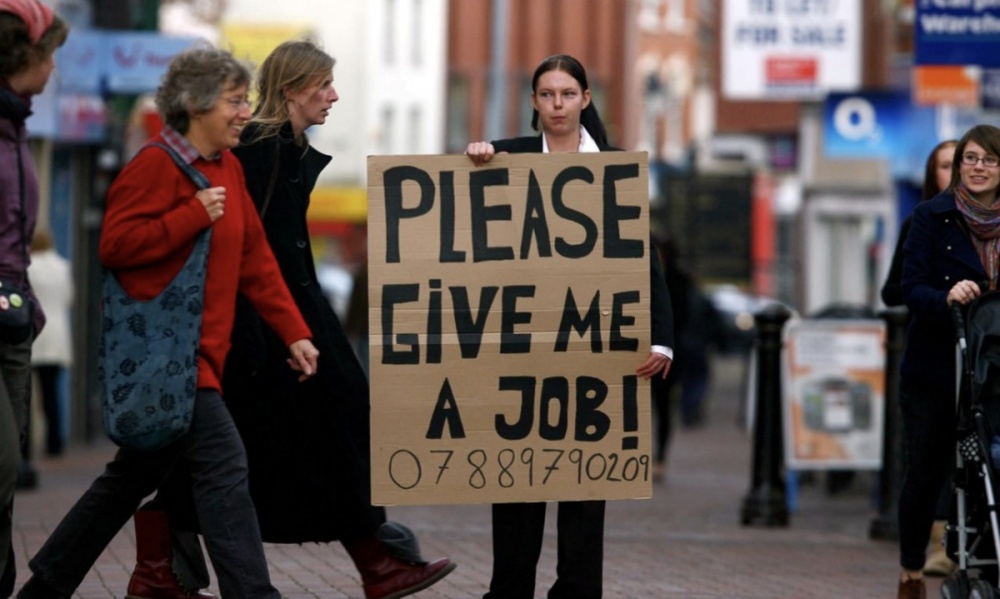 TO LET/
FOR SALE
Wareh
O₂
PLEASE
GiVE ME
A JOB!
07889790209